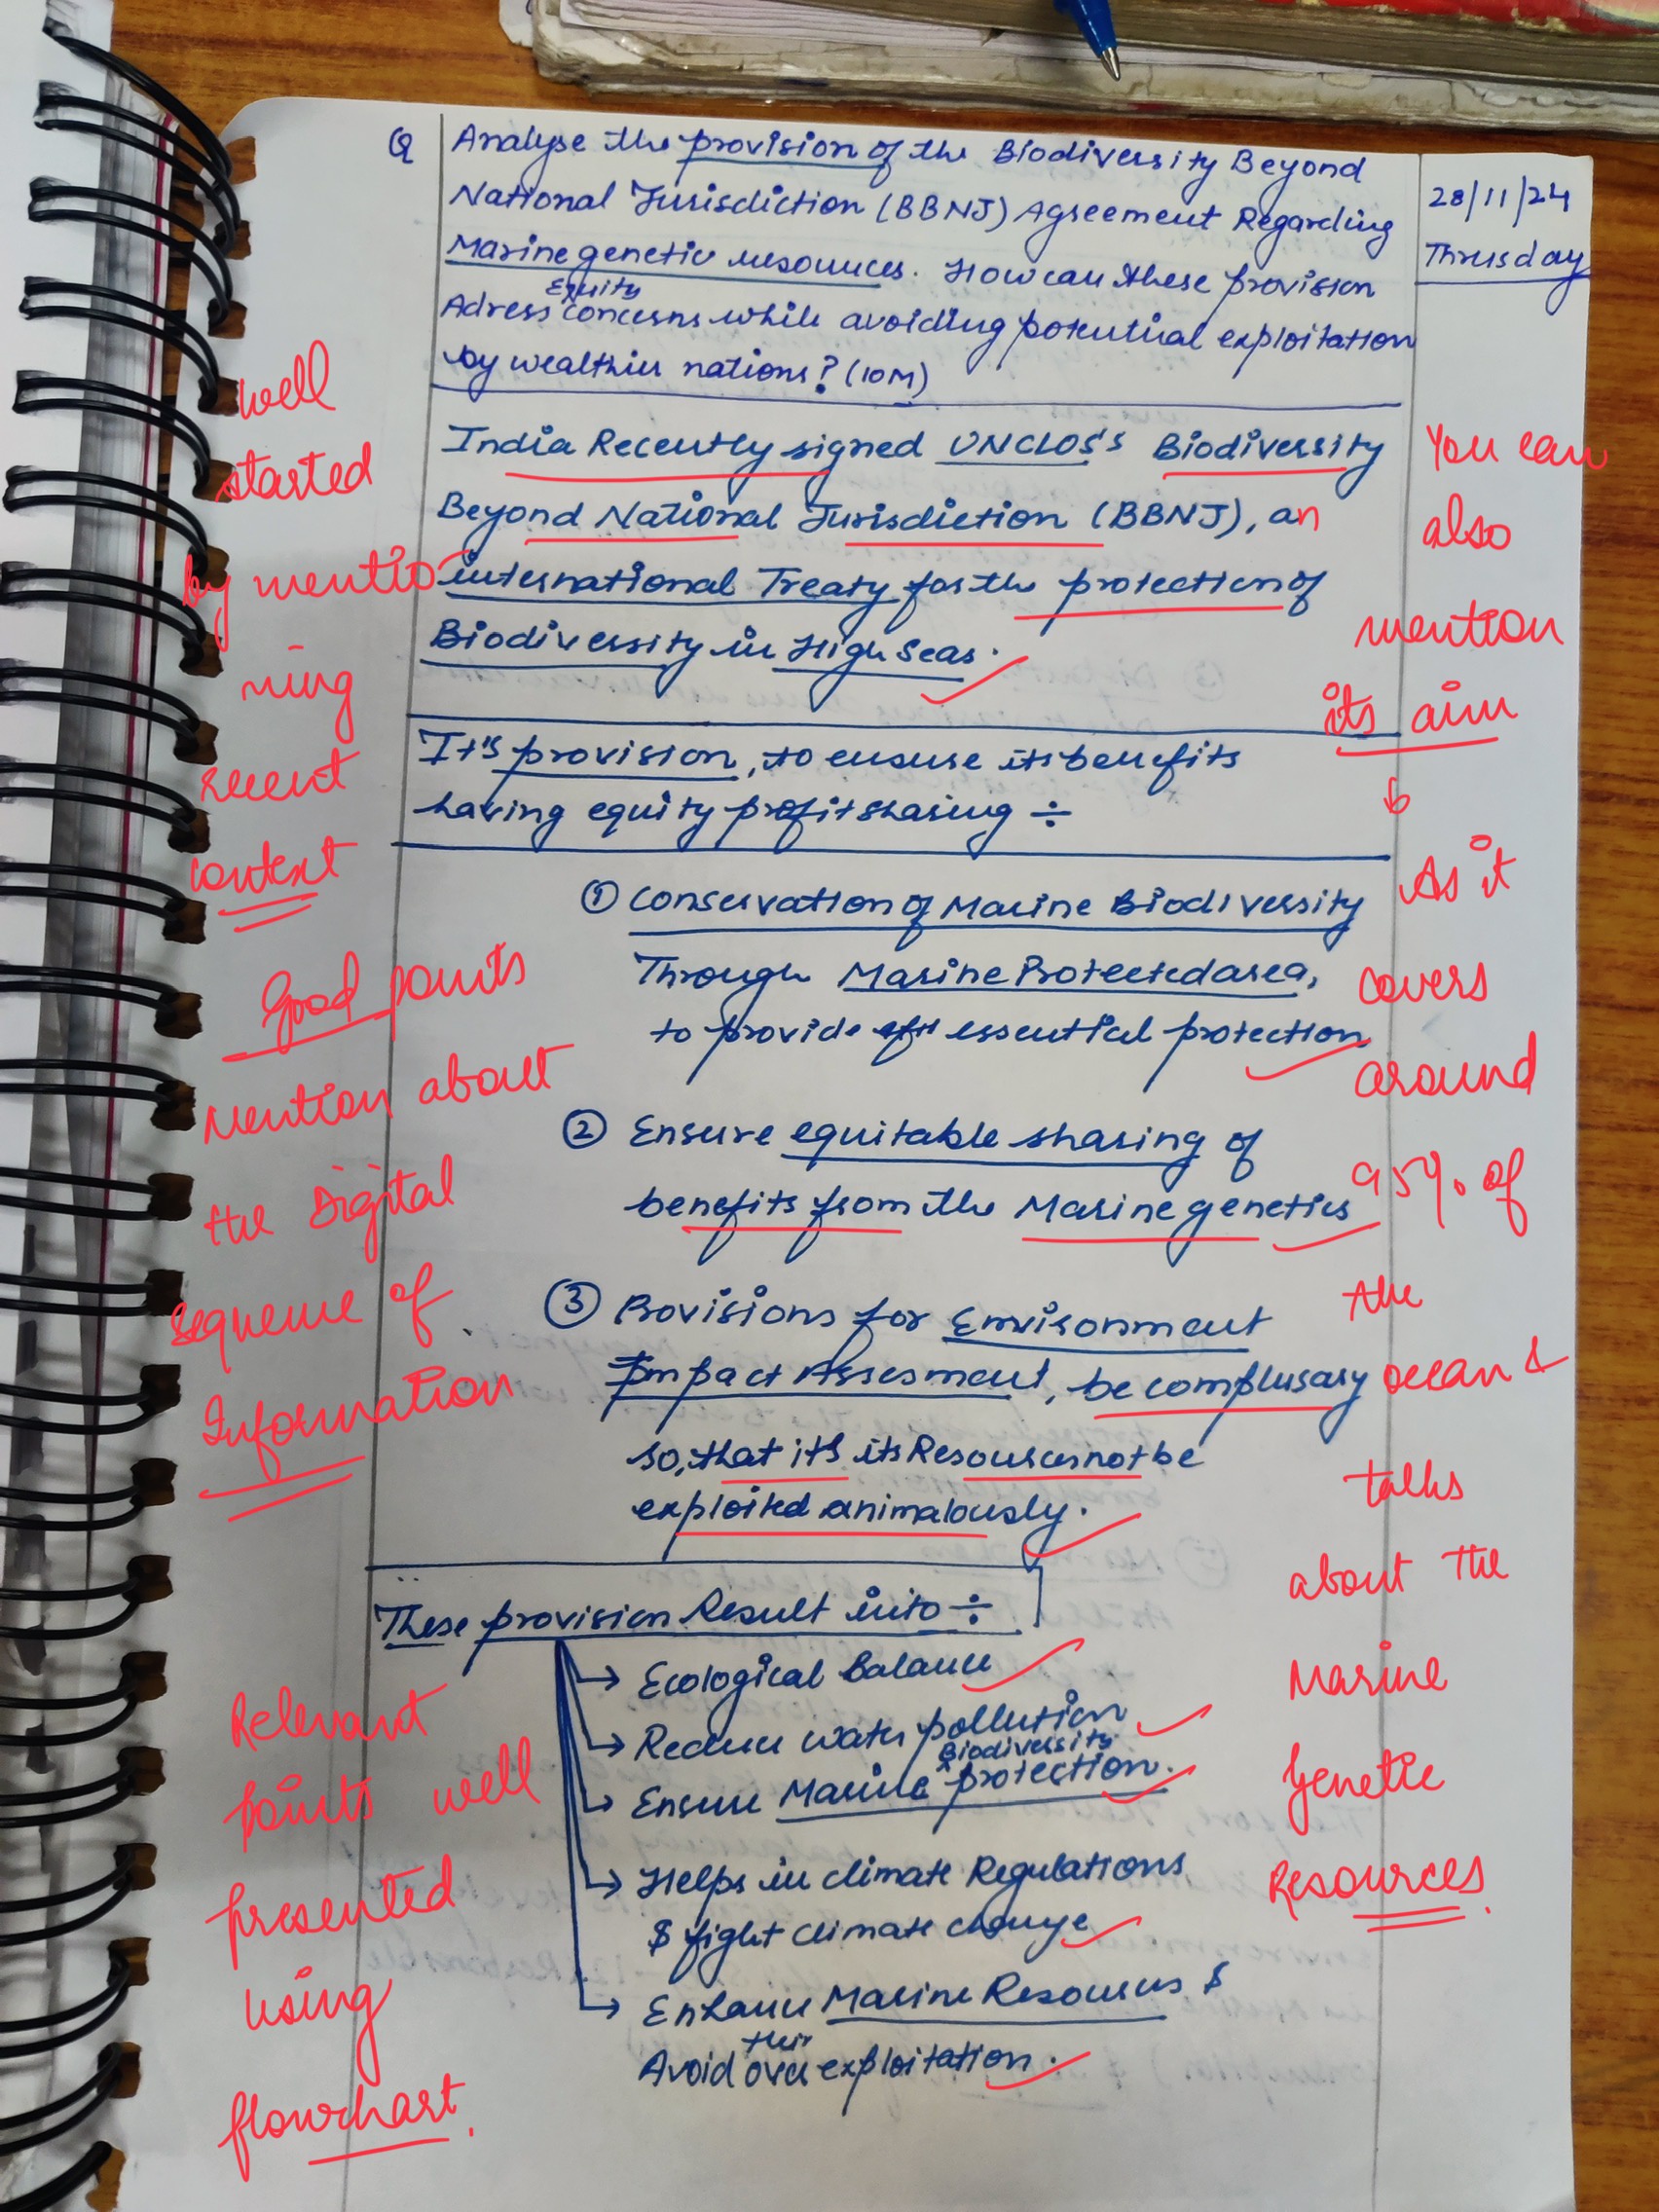 Q Analyse the provision of the Biodiversity Beyond
National Jurisdiction (BBNJ) Agreement Regarding
Marine genetic resources. How can these provision
Adress Equity concerns while avoiding potential exploitation
by wealthier nations? (10M)
28/11/24
Thrusday
India Recently signed UNCLOS's Biodiversity
Beyond National Jurisdiction (BBNJ), an
international Treaty for the protection of
Biodiversity in High Seas.
It's provision, to ensure its benefits
having equity profit sharing ÷
① Conservation of Marine Biodiversity
Through Marine Protected area,
to provide essential protection
② Ensure equitable sharing of
benefits from the Marine genetics
③ Provisions for Environment
Impact Assesment, be complusary
so, that it's its Resources not be
exploited animalously.
These provision Result into ÷
→ Ecological Balance
→ Reduce water pollution
→ Ensure Marine Biodiversity protection.
→ Helps in climate Regulations
$ fight climate change
→ Enhance Marine Resources $
Avoid their over exploitation.
well
started
by mentio
ning
recent
context
Good points
Mention about
the Digital
Sequence of
Information
Relevant
points well
presented
using
flowchart.
You can
also
mention
its aim
As it
covers
around
95% of
the
ocean &
talks
about the
Marine
Genetic
Resources.